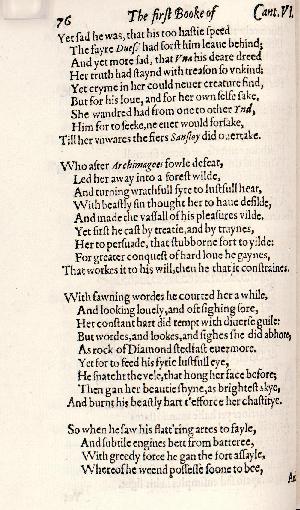 76 The first Booke of Cant. VI.
Yet sad he was, that his too hastie speed
The fayre Duess' had forst him leaue behind;
And yet more sad, that Vna his deare dreed
Her truth had staynd with treason so vnkind;
Yet cryme in her could neuer creature find,
But for his loue, and for her owne selfe sake,
She wandred had from one to other Ynd,
Him for to seeke, ne euer would forsake,
Till her vnwares the fiers Sansloy did ouertake.
Who after Archimagoes fowle defeat,
Led her away into a forest wilde,
And turning wrathfull fyre to lustfull heat,
With beastly sin thought her to haue defilde,
And made the vassall of his pleasures vilde.
Yet first he cast by treatie, and by traynes,
Her to persuade, that stubborne fort to yilde:
For greater conquest of hard loue he gaynes,
That workes it to his will, then he that it constraines.
With fawning wordes he courted her a while,
And looking louely, and oft sighing sore,
Her constant hart did tempt with diuerse guile:
But wordes, and lookes, and sighes she did abhore,
As rock of Diamond stedfast euermore.
Yet for to feed his fyrie lustfull eye,
He snatcht the vele, that hong her face before;
Then gan her beautie shyne, as brightest skye,
And burnt his beastly hart t'efforce her chastitye.
So when he saw his flatt'ring artes to fayle,
And subtile engines bett from batteree,
With greedy force he gan the fort assayle,
Whereof he weend possessed soone to bee,